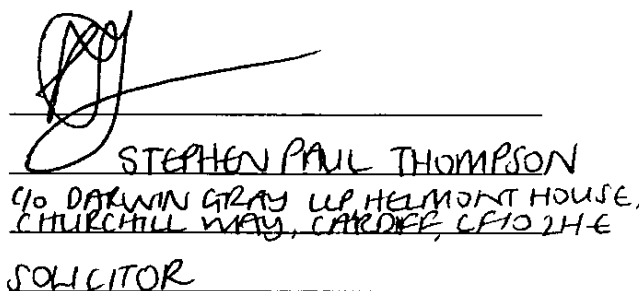 STEPHEN PAUL THOMPSON
C/O DARWIN GRAY LLP, HELMONT HOUSE,
CHURCHILL WAY, CARDIFF, CF10 2HE
SOLICITOR